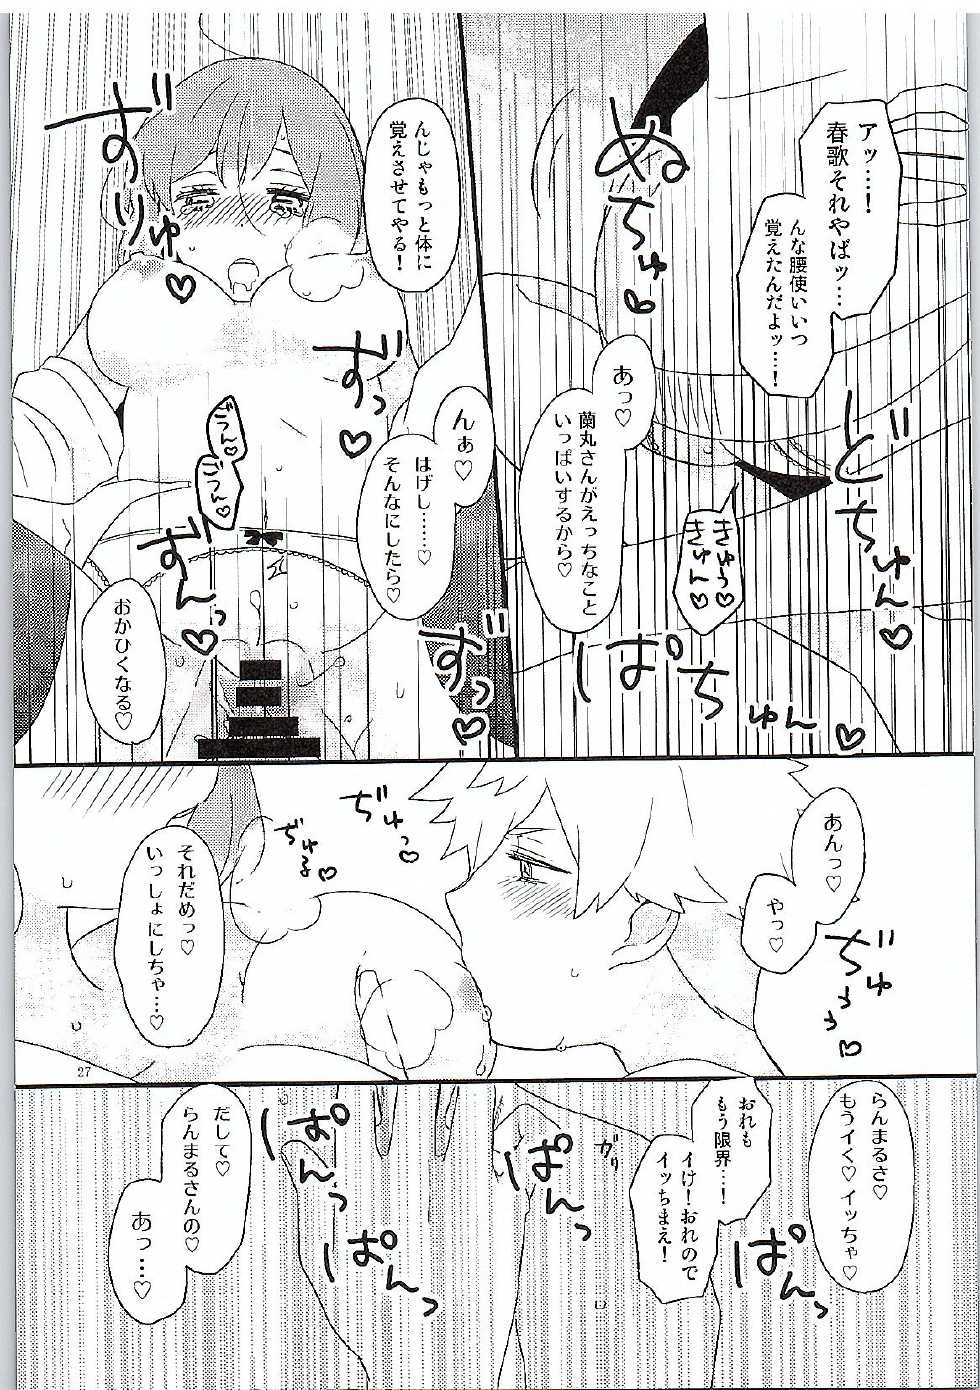 アッ……！
春歌それやばッ…
んな腰使いいつ
覚えたんだよッ…！
ぬちゅっ♡
あっ♡
蘭丸さんがえっちなこと
いっぱいするから♡
きゅう♡
きゅん♡
どちゅん♡
ぱちゅん♡
んじゃもっと体に
覚えさせてやる！
ずりゅ♡
ずっ♡
んぁ♡
はげし……♡
そんなにしたら♡
ごつん♡
ごつん♡
ずんっ♡
ずっ♡
おかひくなる♡
あんっ♡
やっ♡
ぢゅぅぅ♡
ぢゅっ♡
ぢゅる♡
それだめっ♡
いっしょにしちゃ…♡
27
らんまるさ♡
もうイく♡イッちゃ♡
ぱんっ
おれも
もう限界…！
イけ！おれので
イッちまえ！
ガリ
ぱんっ
ぱんっ
ぱんっ
だして♡
らんまるさんの♡
あっ…♡